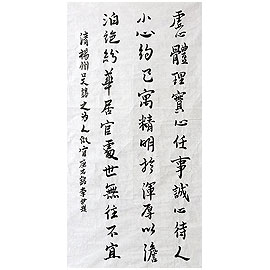 虚心體理實心任事誠心待人
小心約己寓精明於渾厚以澹
泊絶紛華居官處世無往不宜
清楊州吳錫之為人做官